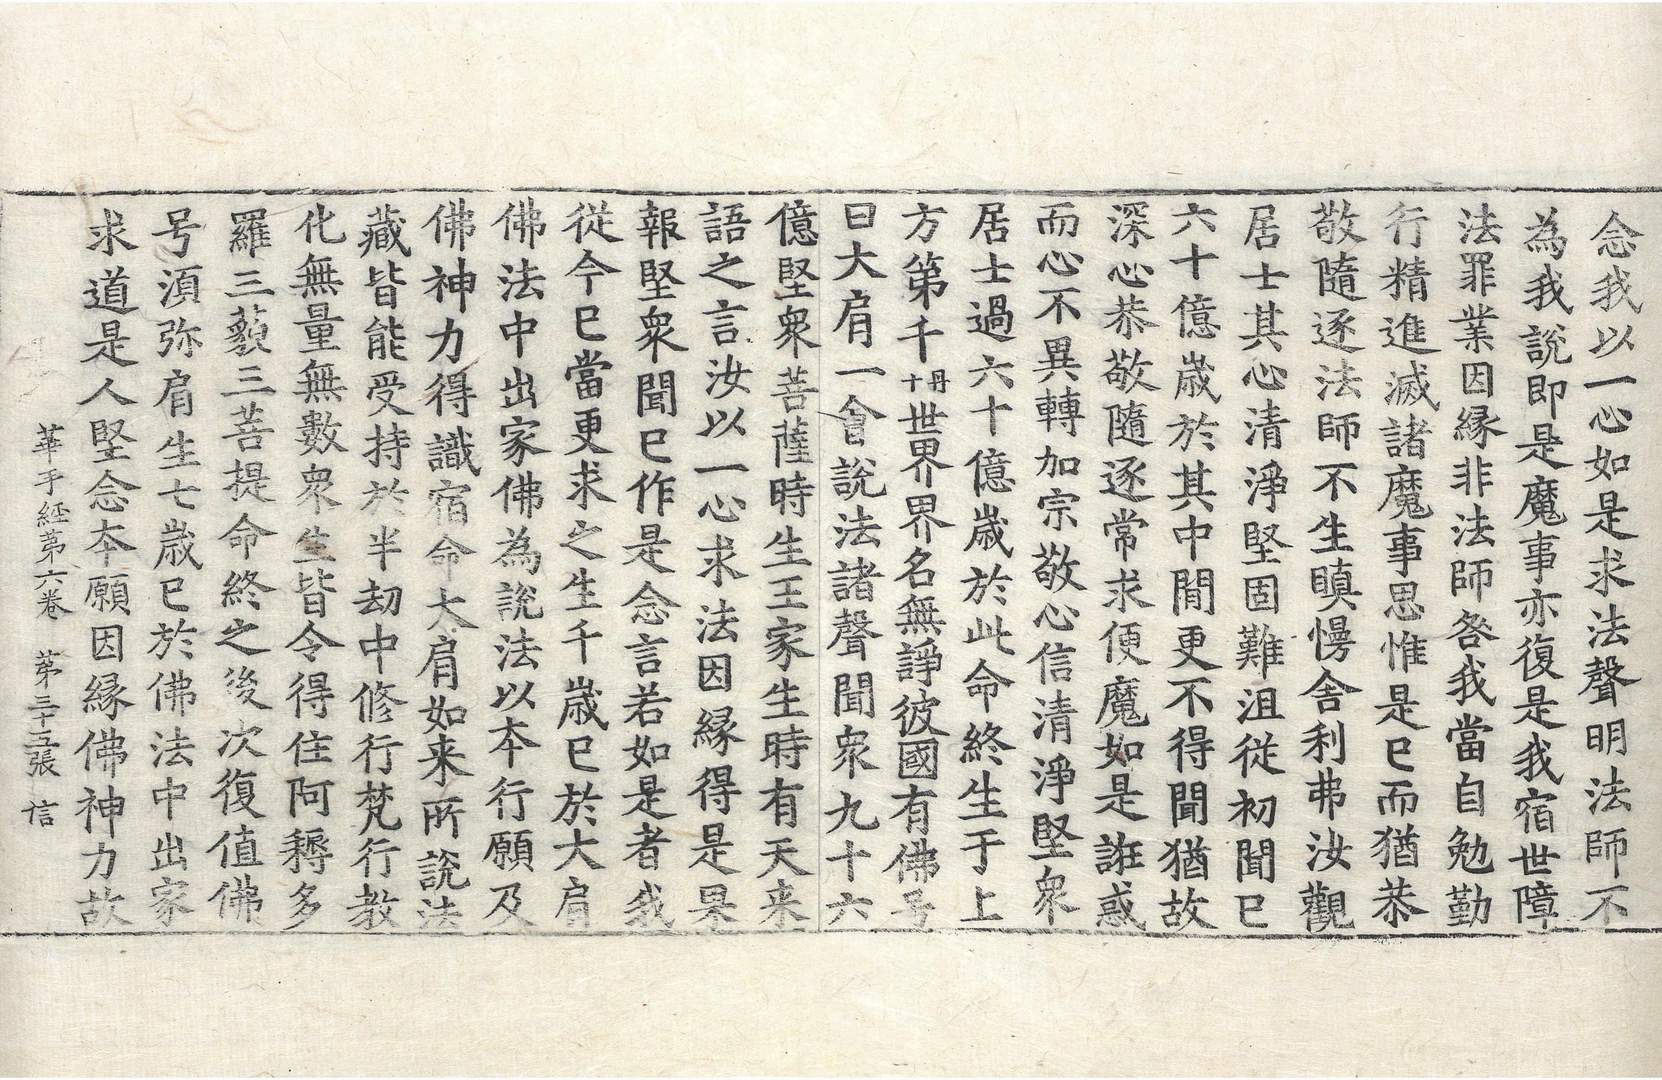 念我以一心如是求法聲明法師不
為我說即是魔事亦復是我宿世障
法罪業因緣非法師咎我當自勉勤
行精進滅諸魔事思惟是已而猶恭
敬隨逐法師不生瞋慢舍利弗汝觀
居士其心清淨堅固難沮從初聞已
六十億歲於其中間更不得聞猶故
深心恭敬隨逐常求便魔如是誑惑
而心不異轉加宗敬心信清淨堅衆
居士過六十億歲於此命終生于上
方第千丹十世界界名無諍彼國有佛号
曰大肩一會說法諸聲聞衆九十六
億堅衆菩薩時生王家生時有天来
語之言汝以一心求法因緣得是果
報堅衆聞已作是念言若如是者我
從今已當更求之生千歲已於大肩
佛法中出家佛為說法以本行願及
佛神力得識宿命大肩如来所說法
藏皆能受持於半劫中修行梵行教
化無量無數衆生皆令得住阿耨多
羅三藐三菩提命終之後次復值佛
号湏弥肩生七歲已於佛法中出家
求道是人堅念本願因緣佛神力故
華手經第六卷 第三十五張 信